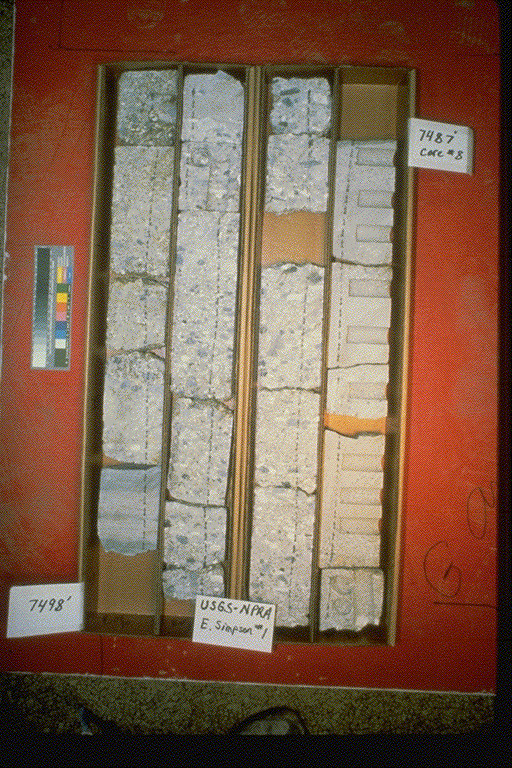 7487'
Core #8
7498'
USGS-NPRA
E. Simpson #1
G